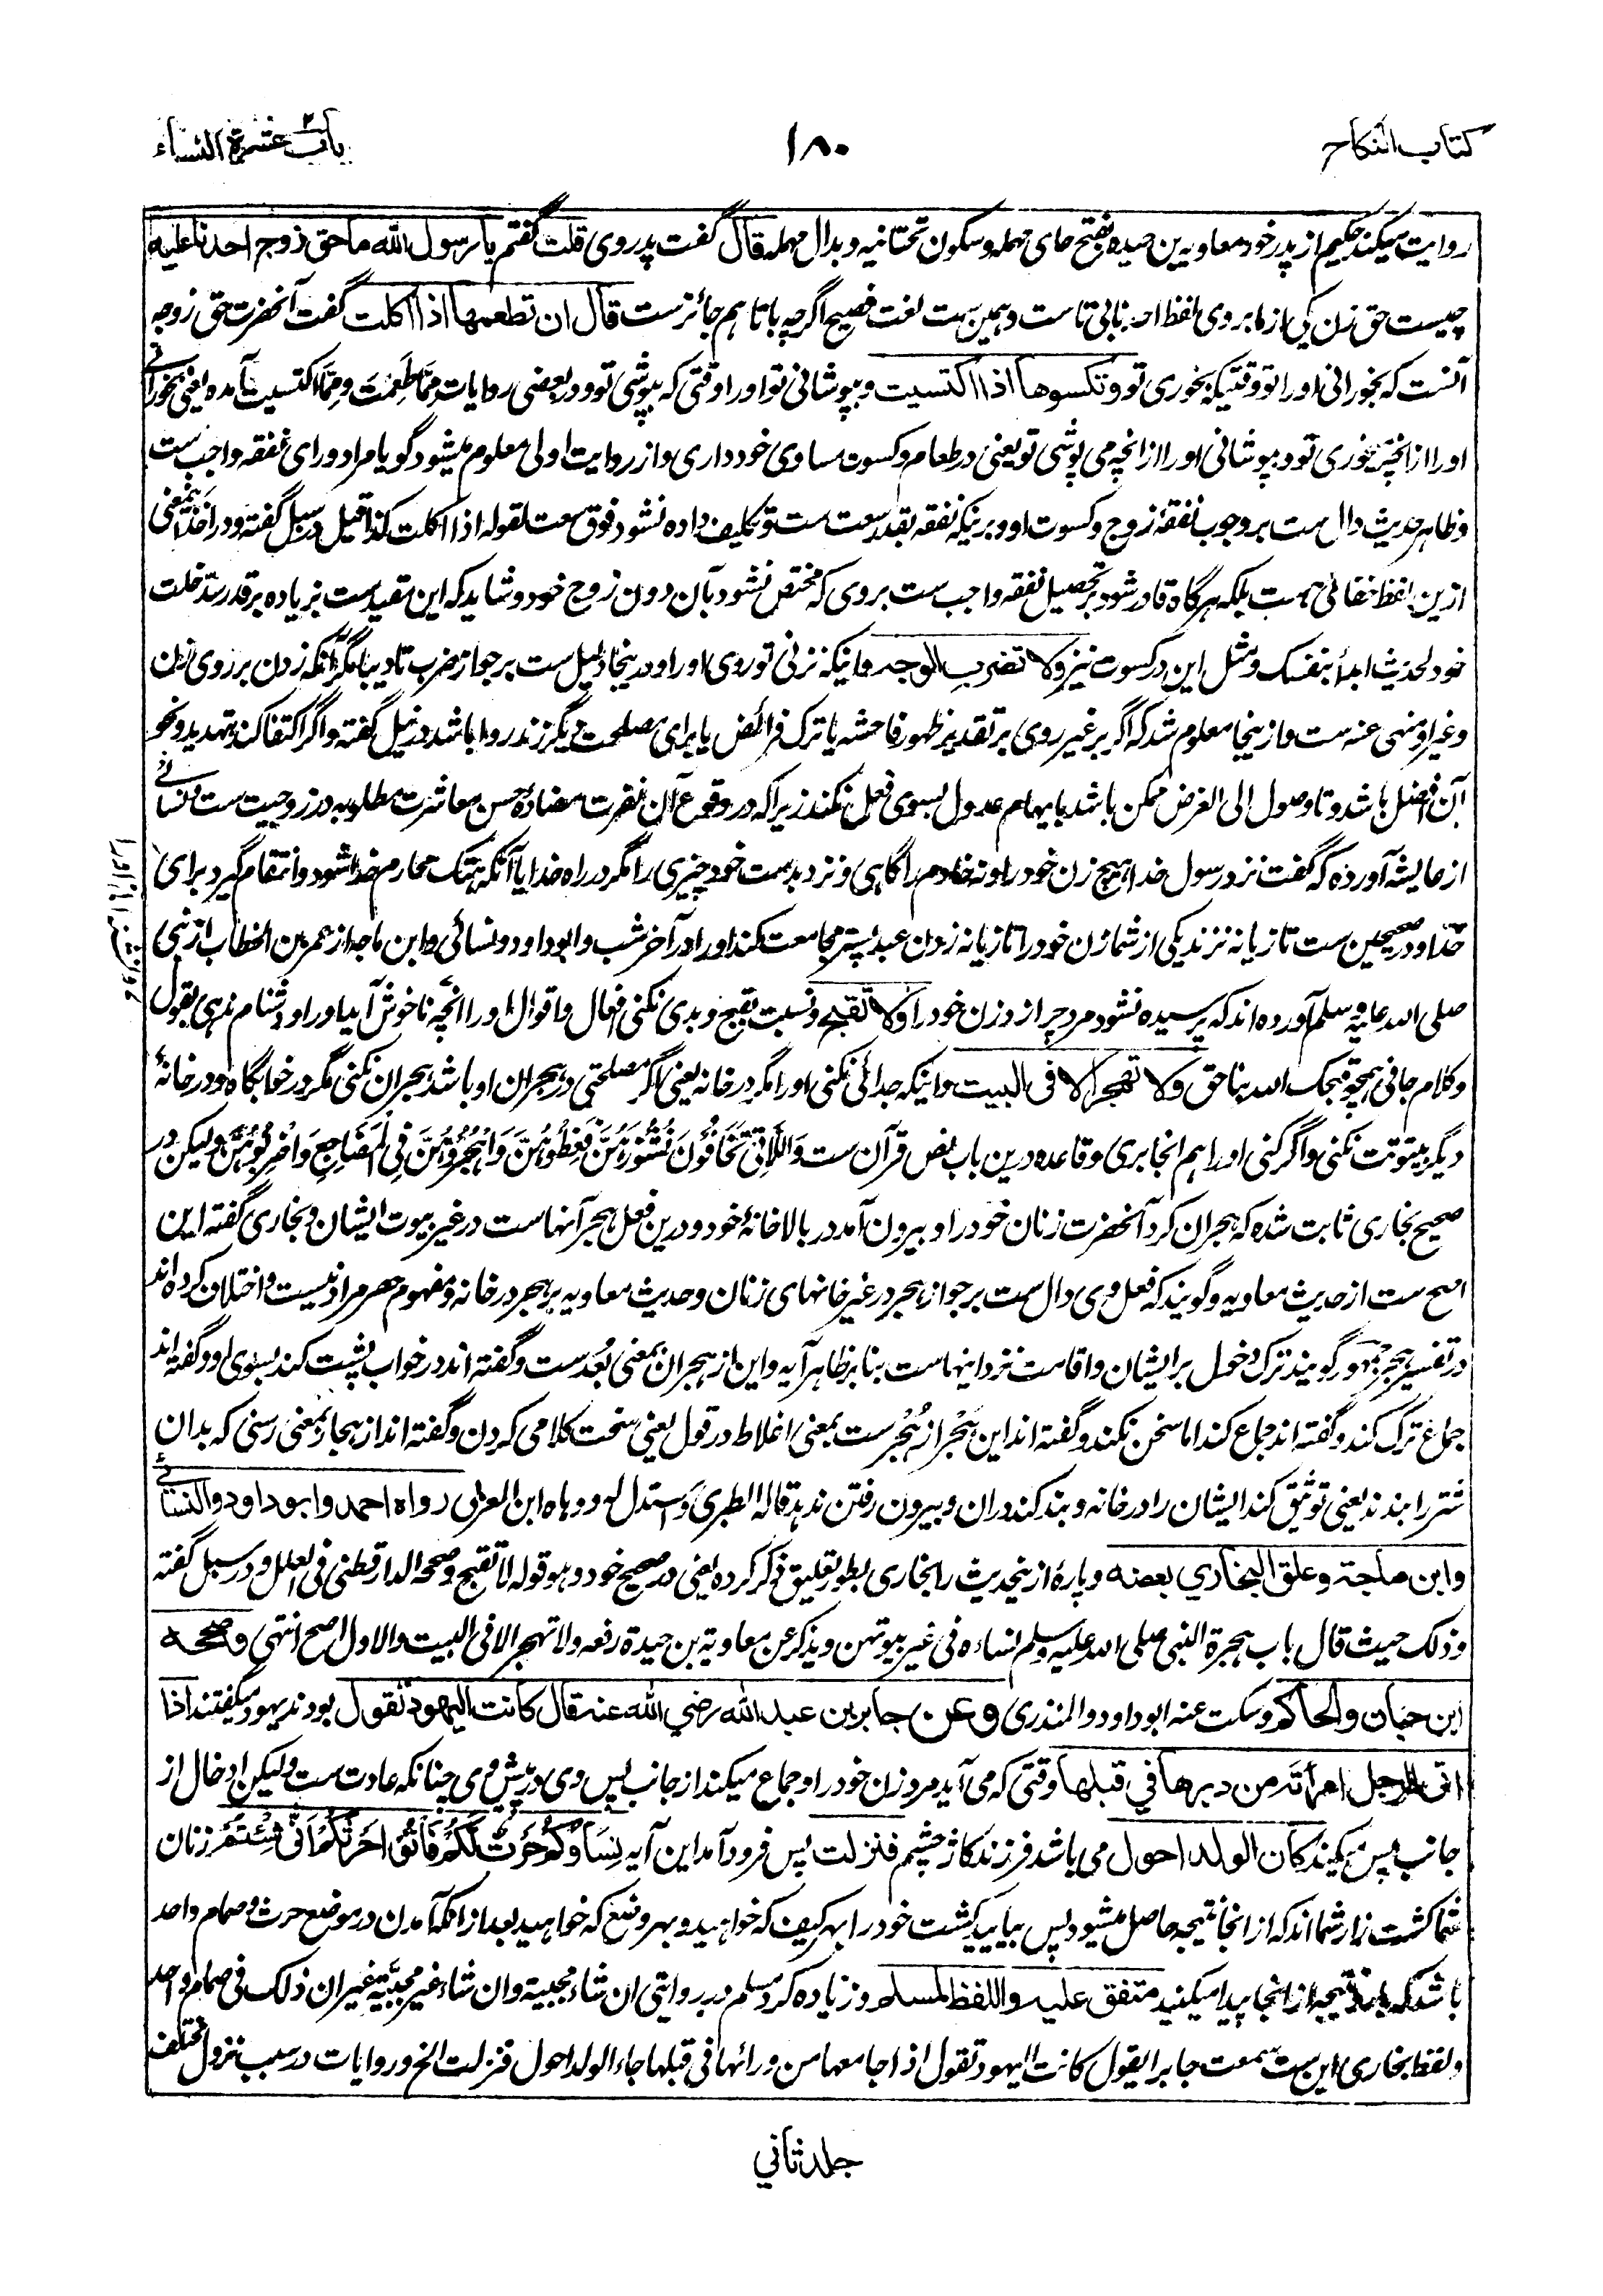 کتاب النکاح
۱۸۰
باب عشرة النساء
روایت میکند حکیم از پدر خود معاویه بن حیده بفتح حای مهمله و سکون تحتانیه و بدال مهمله قال گفت پدر وی قلت گفتم یا رسول الله ما حق زوج احدنا علیه
چیست حق زن یکی از ما بر وی لفظ احد بانی تاست و همین ست لغت فصیح اگرچه با تا هم جائزست قال ان تطعمها اذا اکلت گفت آنحضرت حق زوجه
آنست که بخورانی او را تو وقتیکه بخوری تو و تکسوها اذا اکتسیت و بپوشانی تو او را وقتی که بپوشی تو و در بعضی روایات مما طعمت و مما اکتسیت آمده یعنی بخورانی
او را از انچه بخوری تو و بپوشانی او را از انچه می پوشی تو یعنی در طعام و کسوت مساوی خود داری و از روایت اولی معلوم میشود گویا مراد ورای نفقه واجب ست
و ظاهر حدیث دال ست بر وجوب نفقهٔ زوج و کسوت او و برینکه نفقه بقدر سعت ست و تکلیف داده نشود فوق سعت لقوله اذا اکلت کذا قیل در سبل گفته و در اخذ این معنی
ازین لفظ خفائی هست بلکه هرگاه قادر شود بر تحصیل نفقه واجب ست بر وی که مختص نشود بآن دون زوج خود و شاید که این مقید ست بزیاده بر قدر سد خلت
خود لحدیث ابدأ بنفسک و مثل این در کسوت نیز و لا تضرب الوجه و اینکه نزنی تو روی او را و درینجا دلیل ست بر جواز ضرب تادیبا مگر آنکه زدن بر روی زن
و غیر او منهی عنه ست و ازینجا معلوم شد که اگر بر غیر روی بر تقدیر ظهور فاحشه یا ترک فرائض یا برای مصلحت دیگر زند روا باشد در نیل گفته و اگر اکتفا کند بتهدید و نحو
آن افضل باشد و تا وصول الی الغرض ممکن باشد بایهام عدول بسوی فعل نکند زیرا که در وقوع آن نفرت مضادهٔ حسن معاشرت مطلوبه در زوجیت ست و نسائی
از عایشه آورده که گفت نزد رسول خدا هیچ زن خود را و نه خادم را گاهی و نزد بدست خود چیزی را مگر در راه خدا یا آنکه هتک محارم خدا شود و انتقام گیرد برای
خدا و در صحیحین ست تازیانه نزند یکی از شما زن خود را تازیانه زدن عبد پستر مجامعت کند او را در آخر شب و ابوداود و نسائی و ابن ماجه از عمر بن الخطاب از نبی
صلی الله علیه و سلم آورده اند که پرسیده نشود مرد چرا زد زن خود را و لا تقبح و نسبت بقبح و بدی نکنی افعال و اقوال او را انچه ناخوش آید او را و دشنام ندهی بقول
و کلام جافی همچو قبحک الله بناحق و لا تهجر الا فی البیت و اینکه جدائی نکنی او را مگر در خانه یعنی اگر مصلحتی در هجران او باشد هجران نکنی مگر در خوابگاه و در خانهٔ
دیگر بیتوتت نکنی و اگر کنی او را هم انجا بری و قاعده درین باب نص قرآن ست وَاللَّاتِی تَخَافُونَ نُشُوزَهُنَّ فَعِظُوهُنَّ وَاهْجُرُوهُنَّ فِی الْمَضَاجِعِ وَاضْرِبُوهُنَّ ولیکن در
صحیح بخاری ثابت شده که هجران کرد آنحضرت زنان خود را و بیرون آمد در بالاخانهٔ خود و درین فعل هجر آنهاست در غیر بیوت ایشان و بخاری گفته این
اصح ست از حدیث معاویه و گویند که فعل وی دال ست بر جواز هجر در غیر خانهای زنان و حدیث معاویه بر هجر در خانه و مفهوم حصر مراد نیست و اختلاف کرده اند
در تفسیر هجر جمهور گویند ترک دخول بر ایشان و اقامت نزد اینهاست بنا بر ظاهر آیه و این از هجران بمعنی بُعد ست و گفته اند در خواب پشت کند بسوی او و گفته اند
جماع ترک کند و گفته اند جماع کند اما سخن نکند و گفته اند این هَجْر از هُجْر ست بمعنی اغلاط در قول یعنی سخت کلامی کردن و گفته اند از هجار بمعنی رسنی که بدان
شتر را بندند یعنی توثیق کند ایشان را در خانه و بند کند دران و بیرون رفتن ندهد قاله الطبری و استدل له و وهاه ابن العربی رواه احمد و ابوداود و النسائی
و ابن ماجة و علق البخاري بعضه و پارهٔ از نحدیث را بخاری بطور تعلیق ذکر کرده یعنی در صحیح خود و هو قوله لا تقبح و صححه الدارقطنی فی العلل و در سبل گفته
و ذلک حیث قال باب هجرة النبی صلی الله علیه وسلم نساءه فی غیر بیوتهن و یذکر عن معاویة بن حیدة رفعه ولا تهجر الا فی البیت والاول اصح انتهی و صححه
ابن حبان والحاکم و سکت عنه ابوداود و المنذری و عن جابر بن عبد الله رضي الله عنه قال کانت الیهود تقول بودند یهود میگفتند اذا
اتی الرجل امرأته من دبرها في قبلها وقتی که می آید مرد زن خود را و جماع میکند از جانب پس وی در پیش وی چنانکه عادت ست ولیکن ادخال از
جانب پس میکند کان الولد احول می باشد فرزند کاژ چشم فنزلت پس فرود آمد این آیه نِسَاؤُکُمْ حَرْثٌ لَکُمْ فَأْتُوا حَرْثَکُمْ أَنَّی شِئْتُمْ زنان
شما کشت زار شما اند که از انجا نتیجه حاصل میشود پس بیایید کشت خود را بهر کیف که خواهید و بهر وضع که خواهید بعد از انکه آمدن در موضع حرث و صمام واحد
باشد که نتیجه از انجا پیدا میکنید متفق علیه و اللفظ لمسلم و زیاده کرد مسلم در روایتی ان شاء مجبیة وان شاء غیر مجبیّة غیر ان ذلک فی صمام واحد
و لفظ بخاری این ست سمعت جابرا یقول کانت الیهود تقول اذا جامعها من ورائها فی قبلها جاء الولد احول فنزلت الخ و روایات در سبب نزول مختلف
جلد ثاني